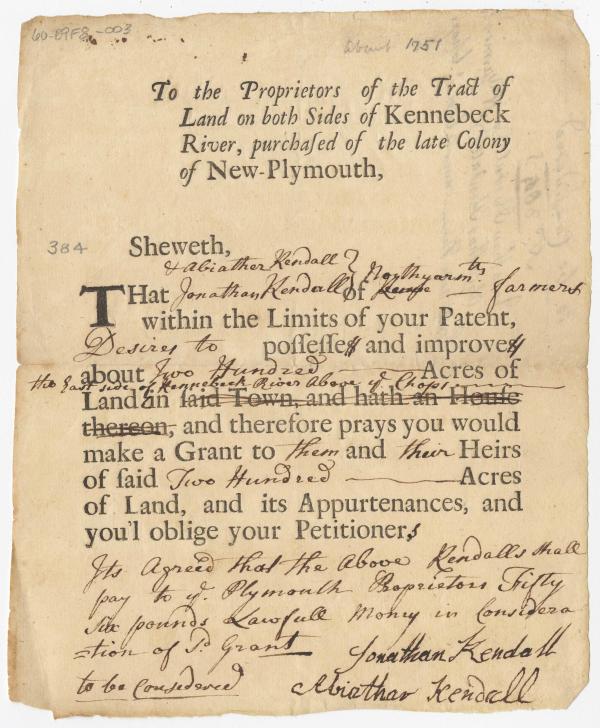 60-89F8-003
about 1751
To the Proprietors of the Tract of
Land on both Sides of Kennebeck
River, purchaſed of the late Colony
of New-Plymouth,
384
Sheweth,
& Abiather Kendall
THat Jonathan Kendall of Northyarmth farmers
within the Limits of your Patent,
Desires to poſſeſſes and improves
about Two Hundred Acres of
the East side of Kennebeck River Above ye Chops
Land in ſaid Town, and hath an Houſe
thereon, and therefore prays you would
make a Grant to them and their Heirs
of ſaid Two Hundred Acres
of Land, and its Appurtenances, and
you'l oblige your Petitioners
Its Agreed that the Above Kendalls shall
pay to ye Plymouth Proprietors Fifty
six pounds Lawfull Money in Considera
=tion of sd Grant
Jonathan Kendall
to be Considered
Abiathar Kendall